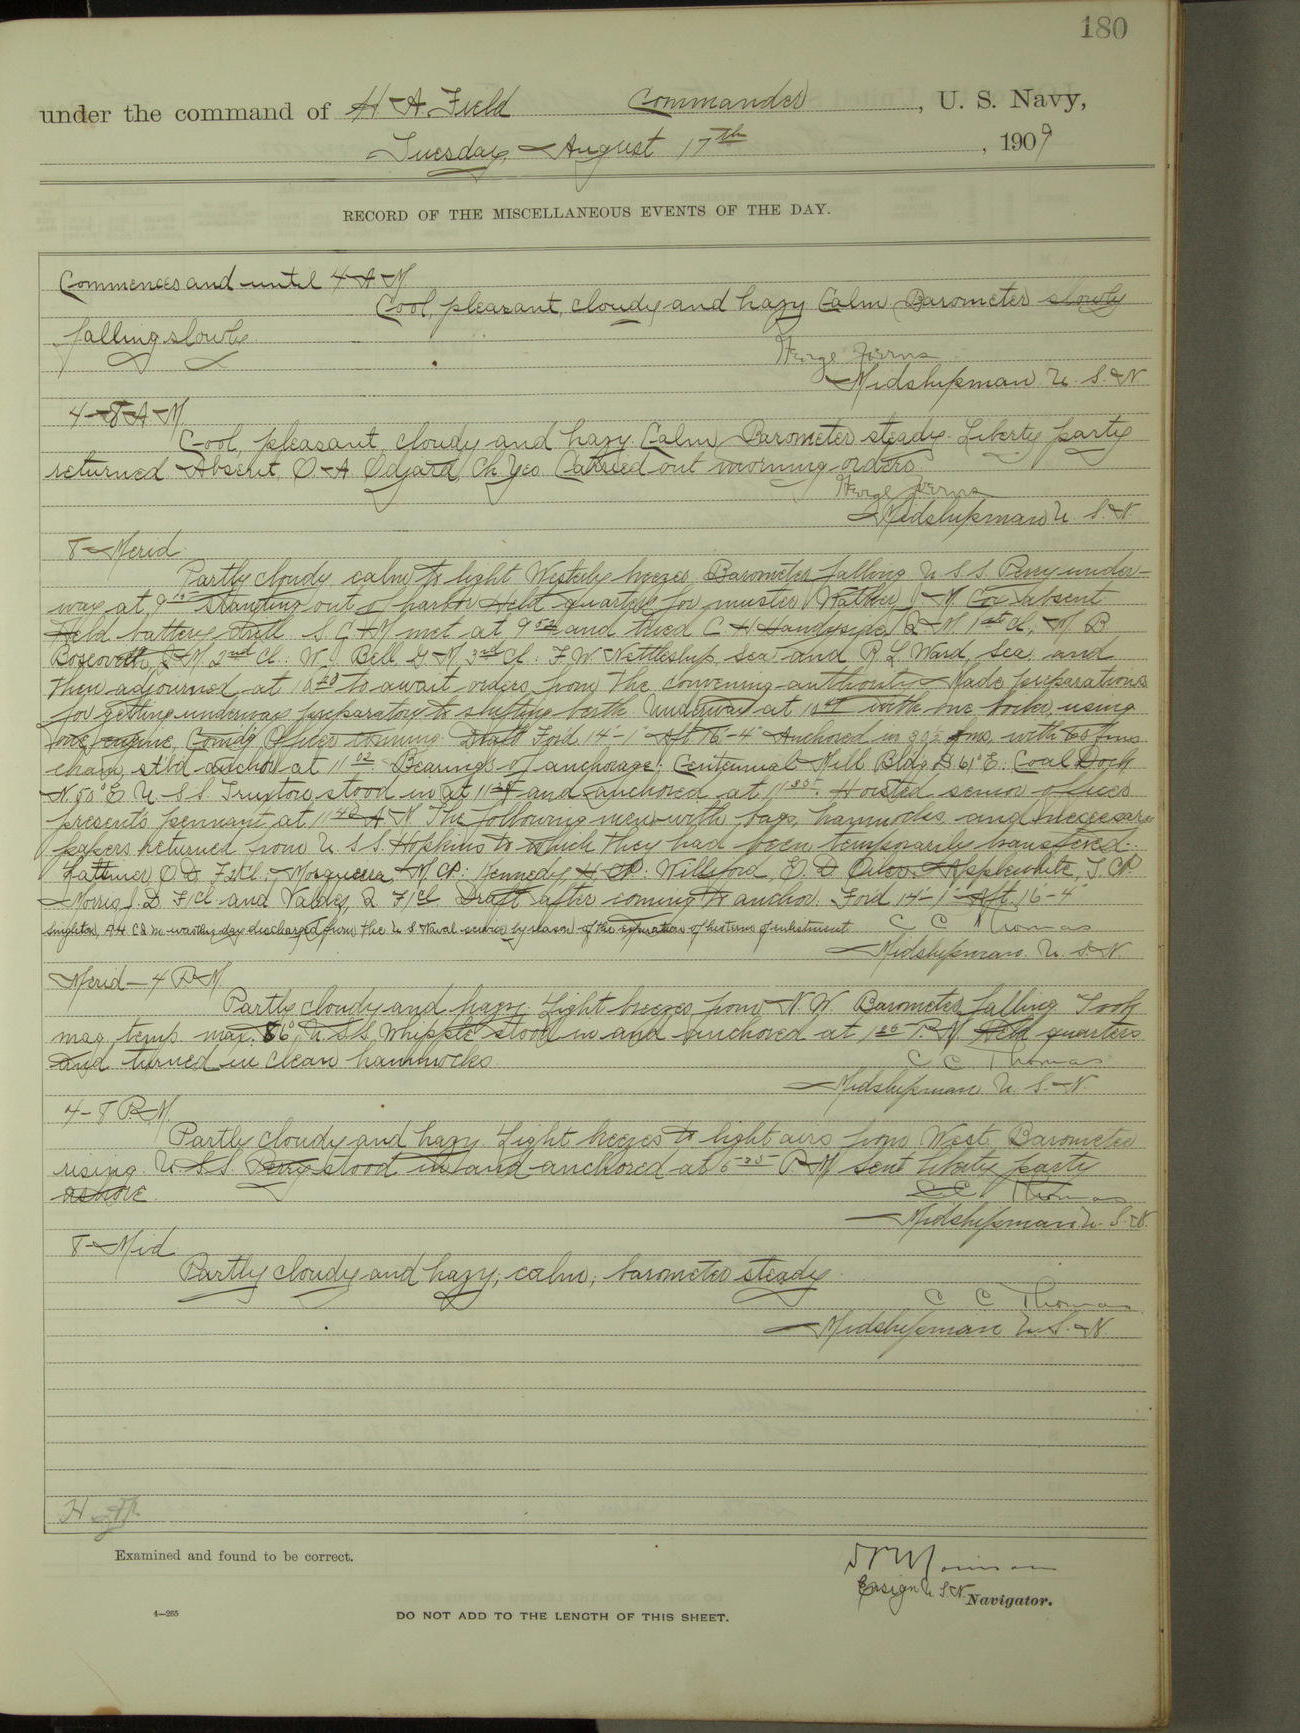 180
under the command of H. A. Field Commander, U. S. Navy,
Tuesday, August 17th, 1909
RECORD OF THE MISCELLANEOUS EVENTS OF THE DAY.
Commences and until 4 A M
Cool, pleasant, cloudy and hazy Calm Barometer slowly
falling slowly.
George Joerns
Midshipman U. S. N
4-8 A M.
Cool, pleasant, cloudy and hazy. Calm Barometer steady. Liberty party
returned Absent, O. A. Odgard, Ch Yeo. Carried out morning orders.
George Joerns
Midshipman U. S. N.
8-Merid.
Partly cloudy, calm to light Westerly breezes Barometer falling U S S. Perry under-
way at 9 15 standing out of harbor Held quarters for muster J. M. Cox absent
Held battery drill S. C. M met at 9 and tried C H Handyside, Q. M. 1st Cl, M B
2nd Cl. W. J. Bell G M 3rd Cl. F. W. Nettleship, sea. and R L Ward, Sea. and
then adjourned at 10 to await orders from the convening authority. Made preparations
for getting underway preparatory to shifting berth Underway at 10 with one boiler, using
one engine, Comdg Officer conning. Draft Ford 14-1 Aft 16-4 Anchored in fms. with fms.
chain, stb'd anchor at 11 02 Bearings of anchorage: Centennial Mill Bldg S 61° E. Coal Dock
N 50° E U S S. Truxton stood in at 11 and anchored at 11 35. Hoisted senior officer
present's pennant at 11 A M The following men with bags, hammocks and necessary
papers returned from U S S. Hopkins to which they had been temporarily transfered:
Lattimer O D F 2 Cl., Mosqueera, M CP: Kennedy H: Willsford, E. D Applewhite, T. CP
Morris J. D. F 1 Cl and Valdez, Q F 1 Cl Draft after coming to anchor. Ford 14'-1" Aft. 16'-4"
C. M. was this day discharged from the U S Naval service by reason of the expiration of his term of enlistment C C Thomas
Midshipman. U. S. N.
Merid-4 P M
Partly cloudy and hazy. Light breezes from N. W. Barometer falling Took
mag. temp. max. 86° U S S. Whipple stood in and anchored at 1 P. M. Held quarters
and turned in clean hammocks.
C C Thomas
Midshipman U. S. N
4-8 P. M.
Partly cloudy and hazy Light breezes to light airs from West. Barometer
rising. U S S. Perry stood in and anchored at 5 25 P M Sent liberty party
ashore.
C C Thomas
Midshipman U. S. N.
8-Mid
Partly cloudy and hazy, calm, barometer steady.
C C Thomas
Midshipman U. S. N.
Examined and found to be correct.
Ensign U. S. N. Navigator.
4—265
DO NOT ADD TO THE LENGTH OF THIS SHEET.